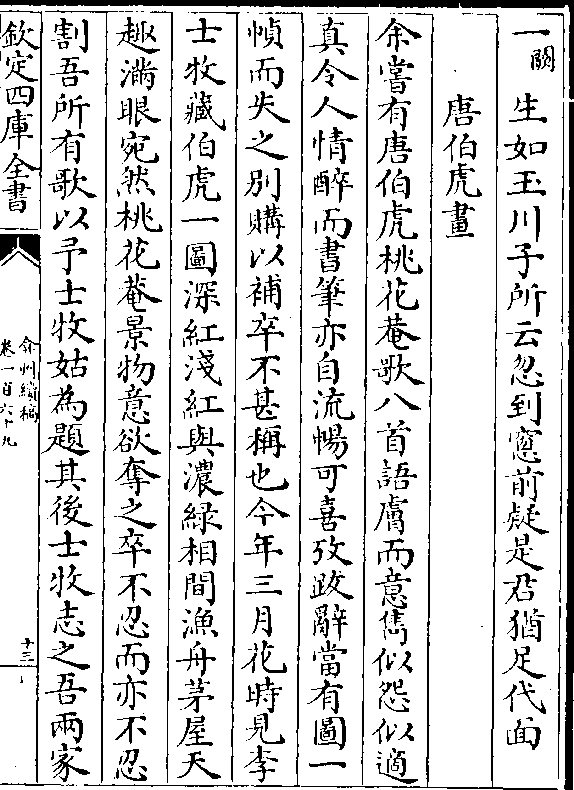 一闕　生如玉川子所云忽到窻前疑是君猶足代面
唐伯虎畫
余嘗有唐伯虎桃花菴歌八首語膚而意雋似怨似適
真令人情醉而書筆亦自流暢可喜攷跋辭當有圖一
幀而失之别購以補卒不甚稱也今年三月花時見李
士牧藏伯虎一圖深紅淺紅與濃緑相間漁舟茅屋天
趣滿眼宛然桃花菴景物意欲奪之卒不忍而亦不忍
割吾所有歌以予士牧姑為題其後士牧志之吾兩家
欽定四庫全書
弇州續稿
卷一百六十九
十三